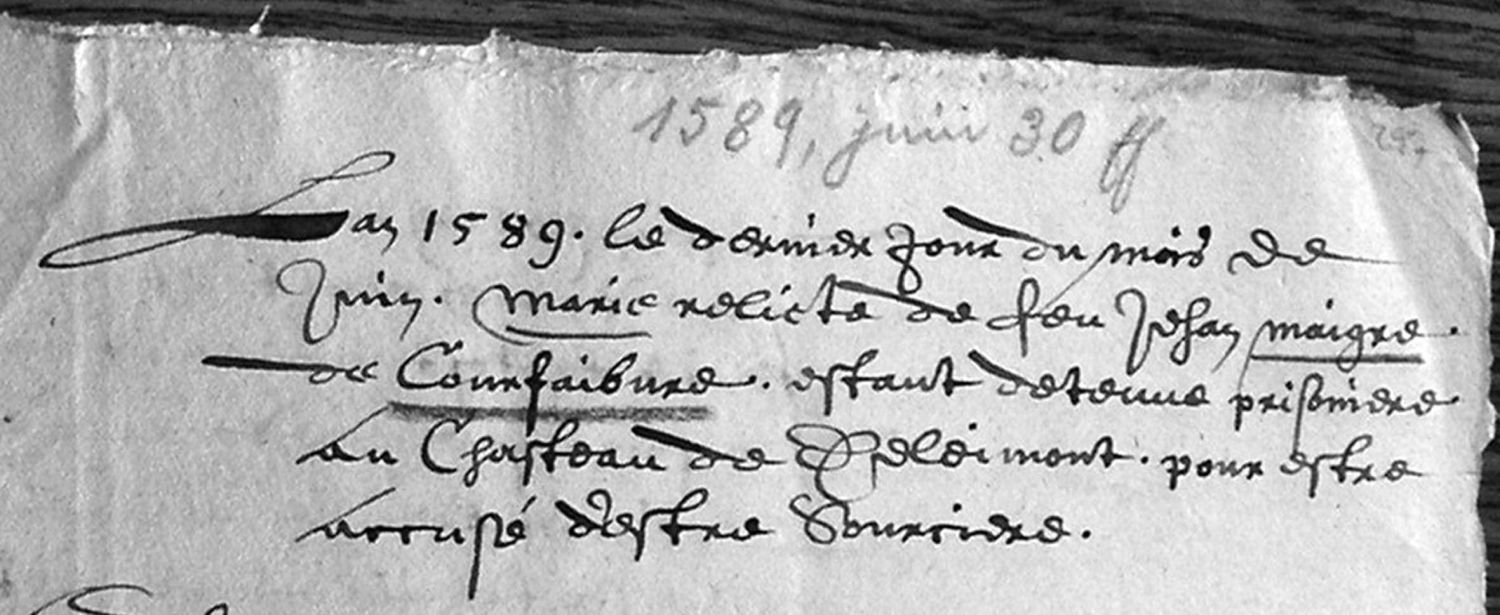 1589, juin 30 ff
Lan 1589. le dernier Jour du mois de
Juin. Marie relicte de feu Jehan maigre.
de Courfaibvre. estant detenue prisoniere
au Chasteau de Deleimont. pour estre
accusé d'estre Sourciere.